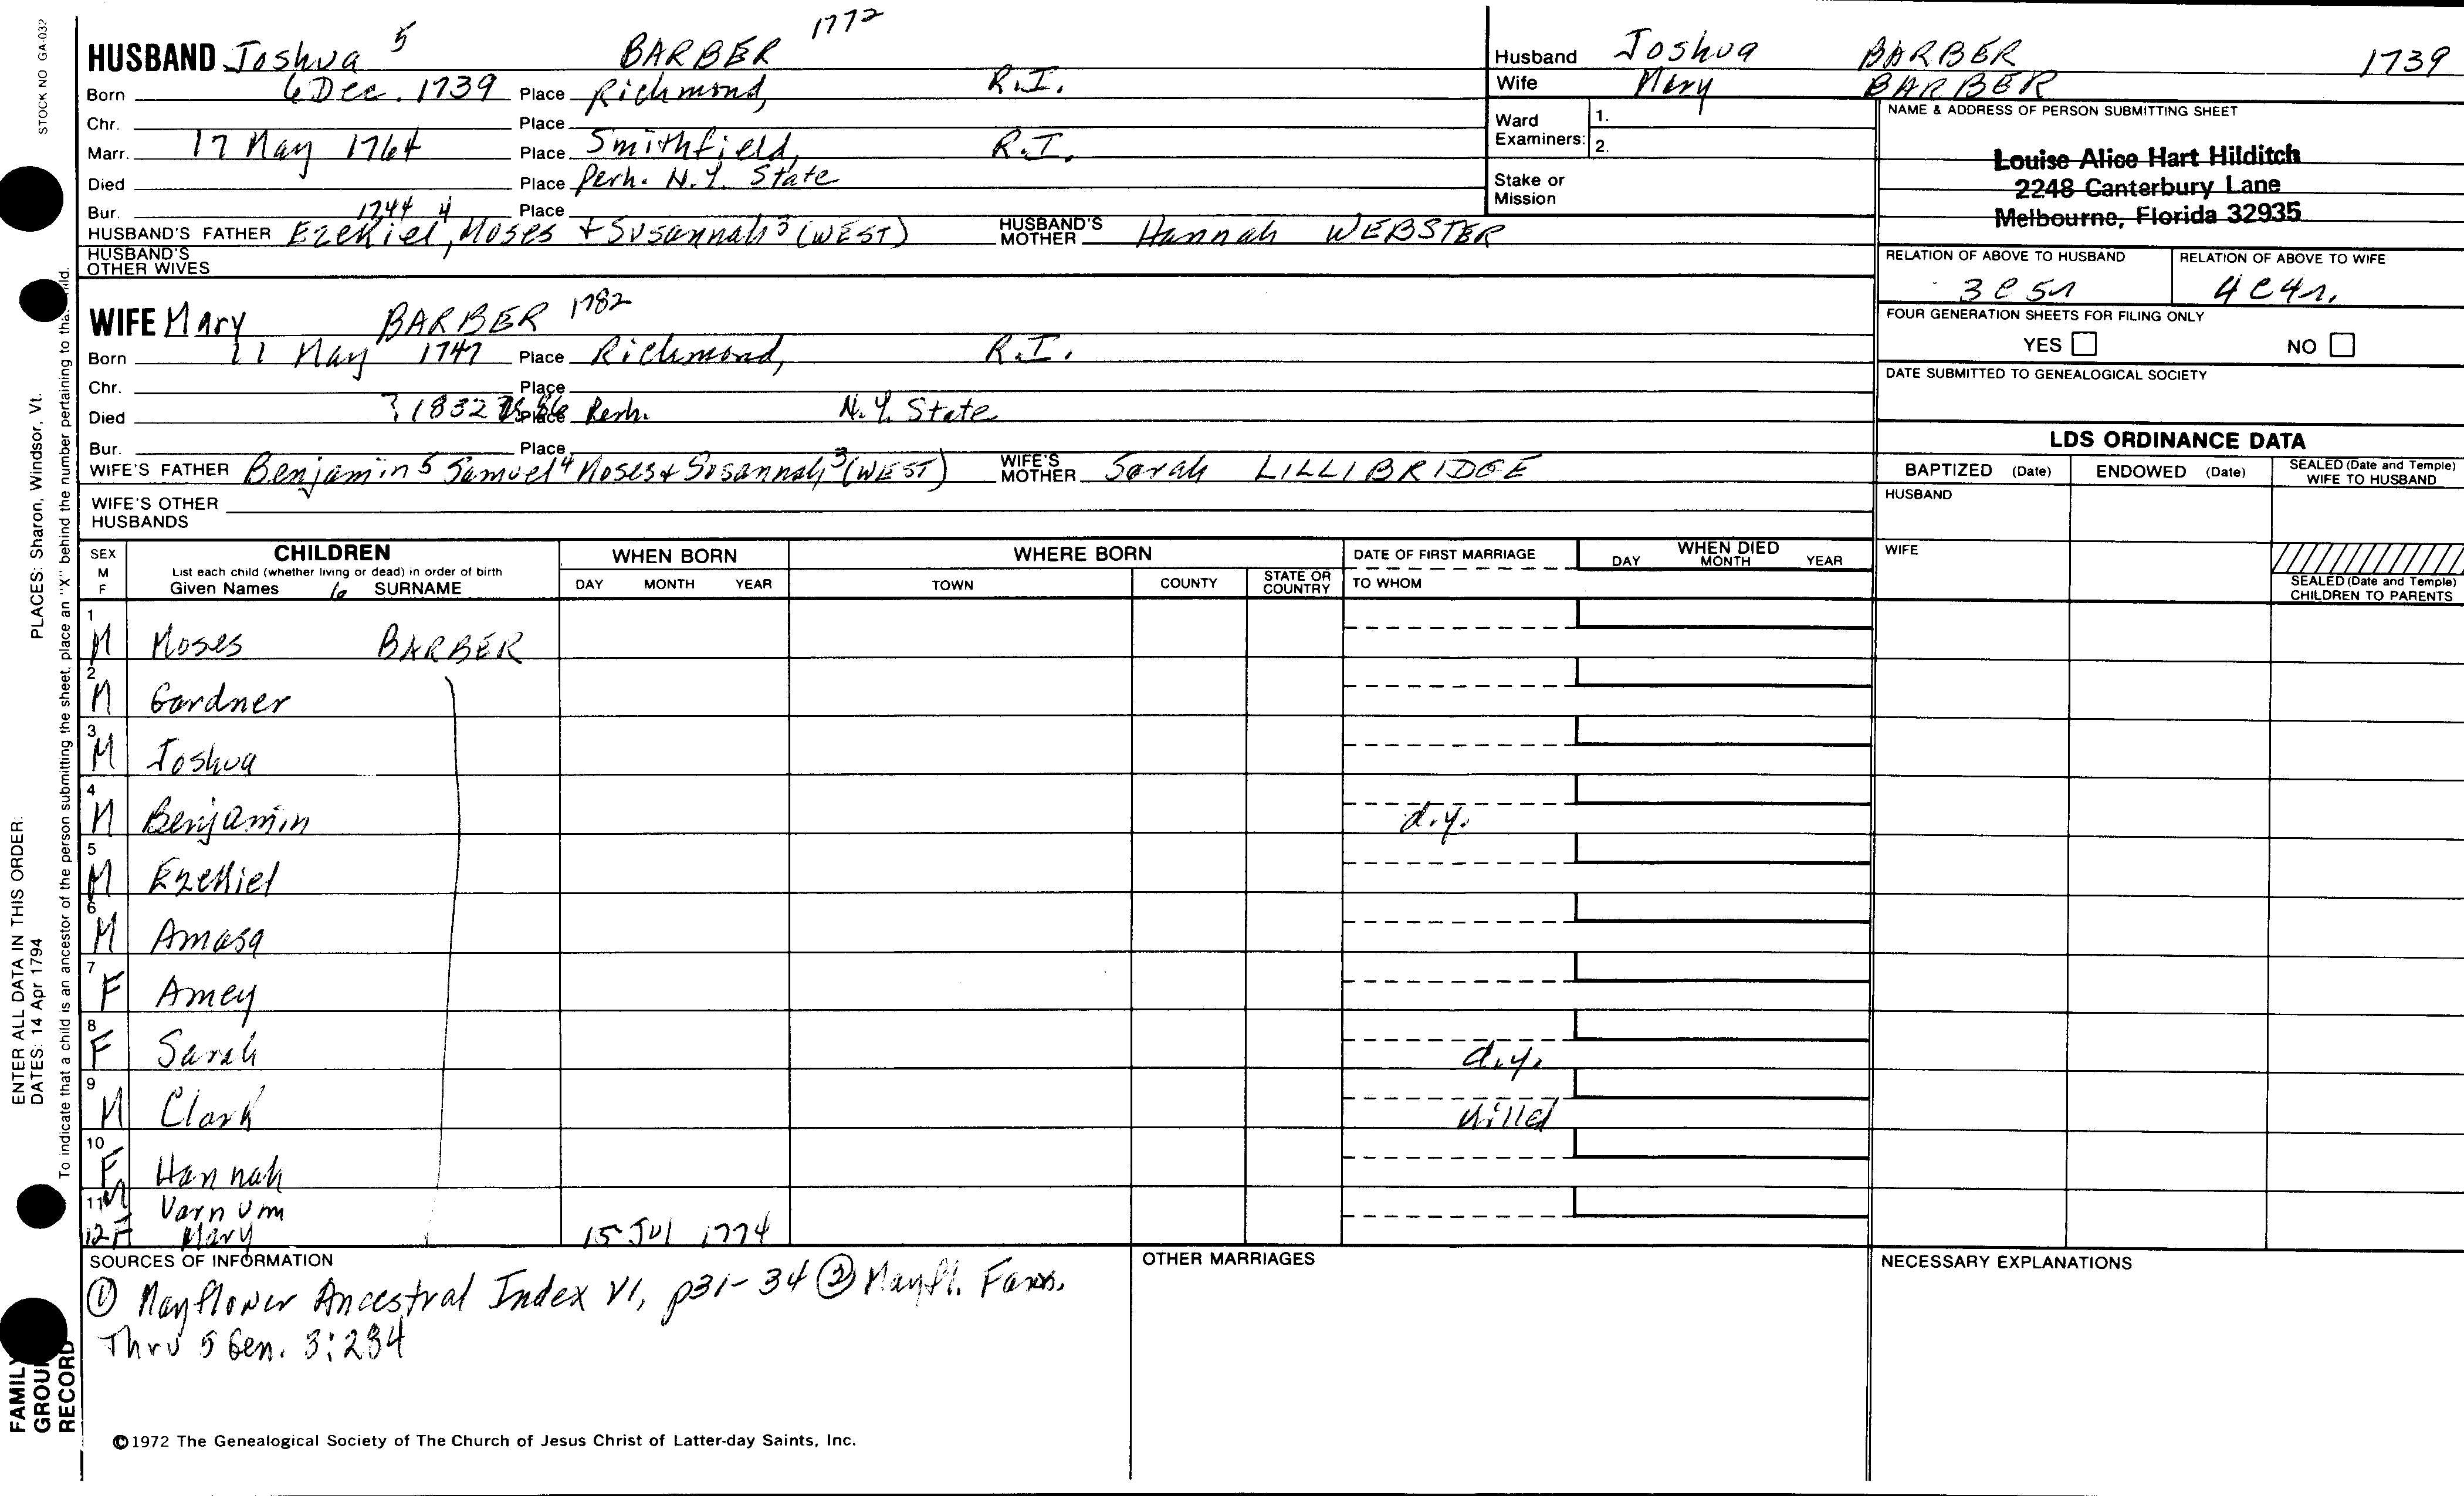 STOCK NO GA-032
HUSBAND Joshua 5 BARBER 1772
Born 6 Dec. 1739 Place Richmond, R.I.
Chr. Place
Marr. 17 May 1764 Place Smithfield, R.I.
Died Place Perh. N.Y. State
Bur. Place
1744 4
HUSBAND'S FATHER Ezekiel, Moses + Susannah 3 (WEST) HUSBAND'S MOTHER Hannah WEBSTER
HUSBAND'S OTHER WIVES
Husband Joshua BARBER 1739
Wife Mary BARBER
Ward Examiners: 1.
2.
Stake or Mission
NAME & ADDRESS OF PERSON SUBMITTING SHEET
Louise Alice Hart Hilditch
2248 Canterbury Lane
Melbourne, Florida 32935
RELATION OF ABOVE TO HUSBAND RELATION OF ABOVE TO WIFE
3c5r 4c4r.
FOUR GENERATION SHEETS FOR FILING ONLY
YES NO
DATE SUBMITTED TO GENEALOGICAL SOCIETY
WIFE Mary BARBER 1782
Born 11 May 1747 Place Richmond, R.I.
Chr. Place
Died ? 1832 Place Perh. N.Y. State
Bur. Place
WIFE'S FATHER Benjamin 5 Samuel 4 Moses + Susannah 3 (WEST) WIFE'S MOTHER Sarah LILLIBRIDGE
WIFE'S OTHER HUSBANDS
LDS ORDINANCE DATA
BAPTIZED (Date) ENDOWED (Date) SEALED (Date and Temple) WIFE TO HUSBAND
HUSBAND
WIFE
SEALED (Date and Temple) CHILDREN TO PARENTS
SEX M F
CHILDREN
List each child (whether living or dead) in order of birth
Given Names 6 SURNAME
WHEN BORN
DAY MONTH YEAR
WHERE BORN
TOWN COUNTY STATE OR COUNTRY
DATE OF FIRST MARRIAGE
TO WHOM
WHEN DIED
DAY MONTH YEAR
1 M Moses BARBER
2 M Gardner
3 M Joshua
4 M Benjamin d.y.
5 M Ezekiel
6 M Amasa
7 F Amey
8 F Sarah d.y.
9 M Clark killed
10 F Hannah
11 M Varnum
12 F Mary 15 Jul 1774
SOURCES OF INFORMATION
① Mayflower Ancestral Index V1, p31-34 ② Mayfl. Fams.
Thru 5 Gen. 3:234
OTHER MARRIAGES
NECESSARY EXPLANATIONS
©1972 The Genealogical Society of The Church of Jesus Christ of Latter-day Saints, Inc.
ENTER ALL DATA IN THIS ORDER:
DATES: 14 Apr 1794
PLACES: Sharon, Windsor, Vt.
To indicate that a child is an ancestor of the person submitting the sheet, place an "X" behind the number pertaining to that child.
FAMILY
GROUP
RECORD